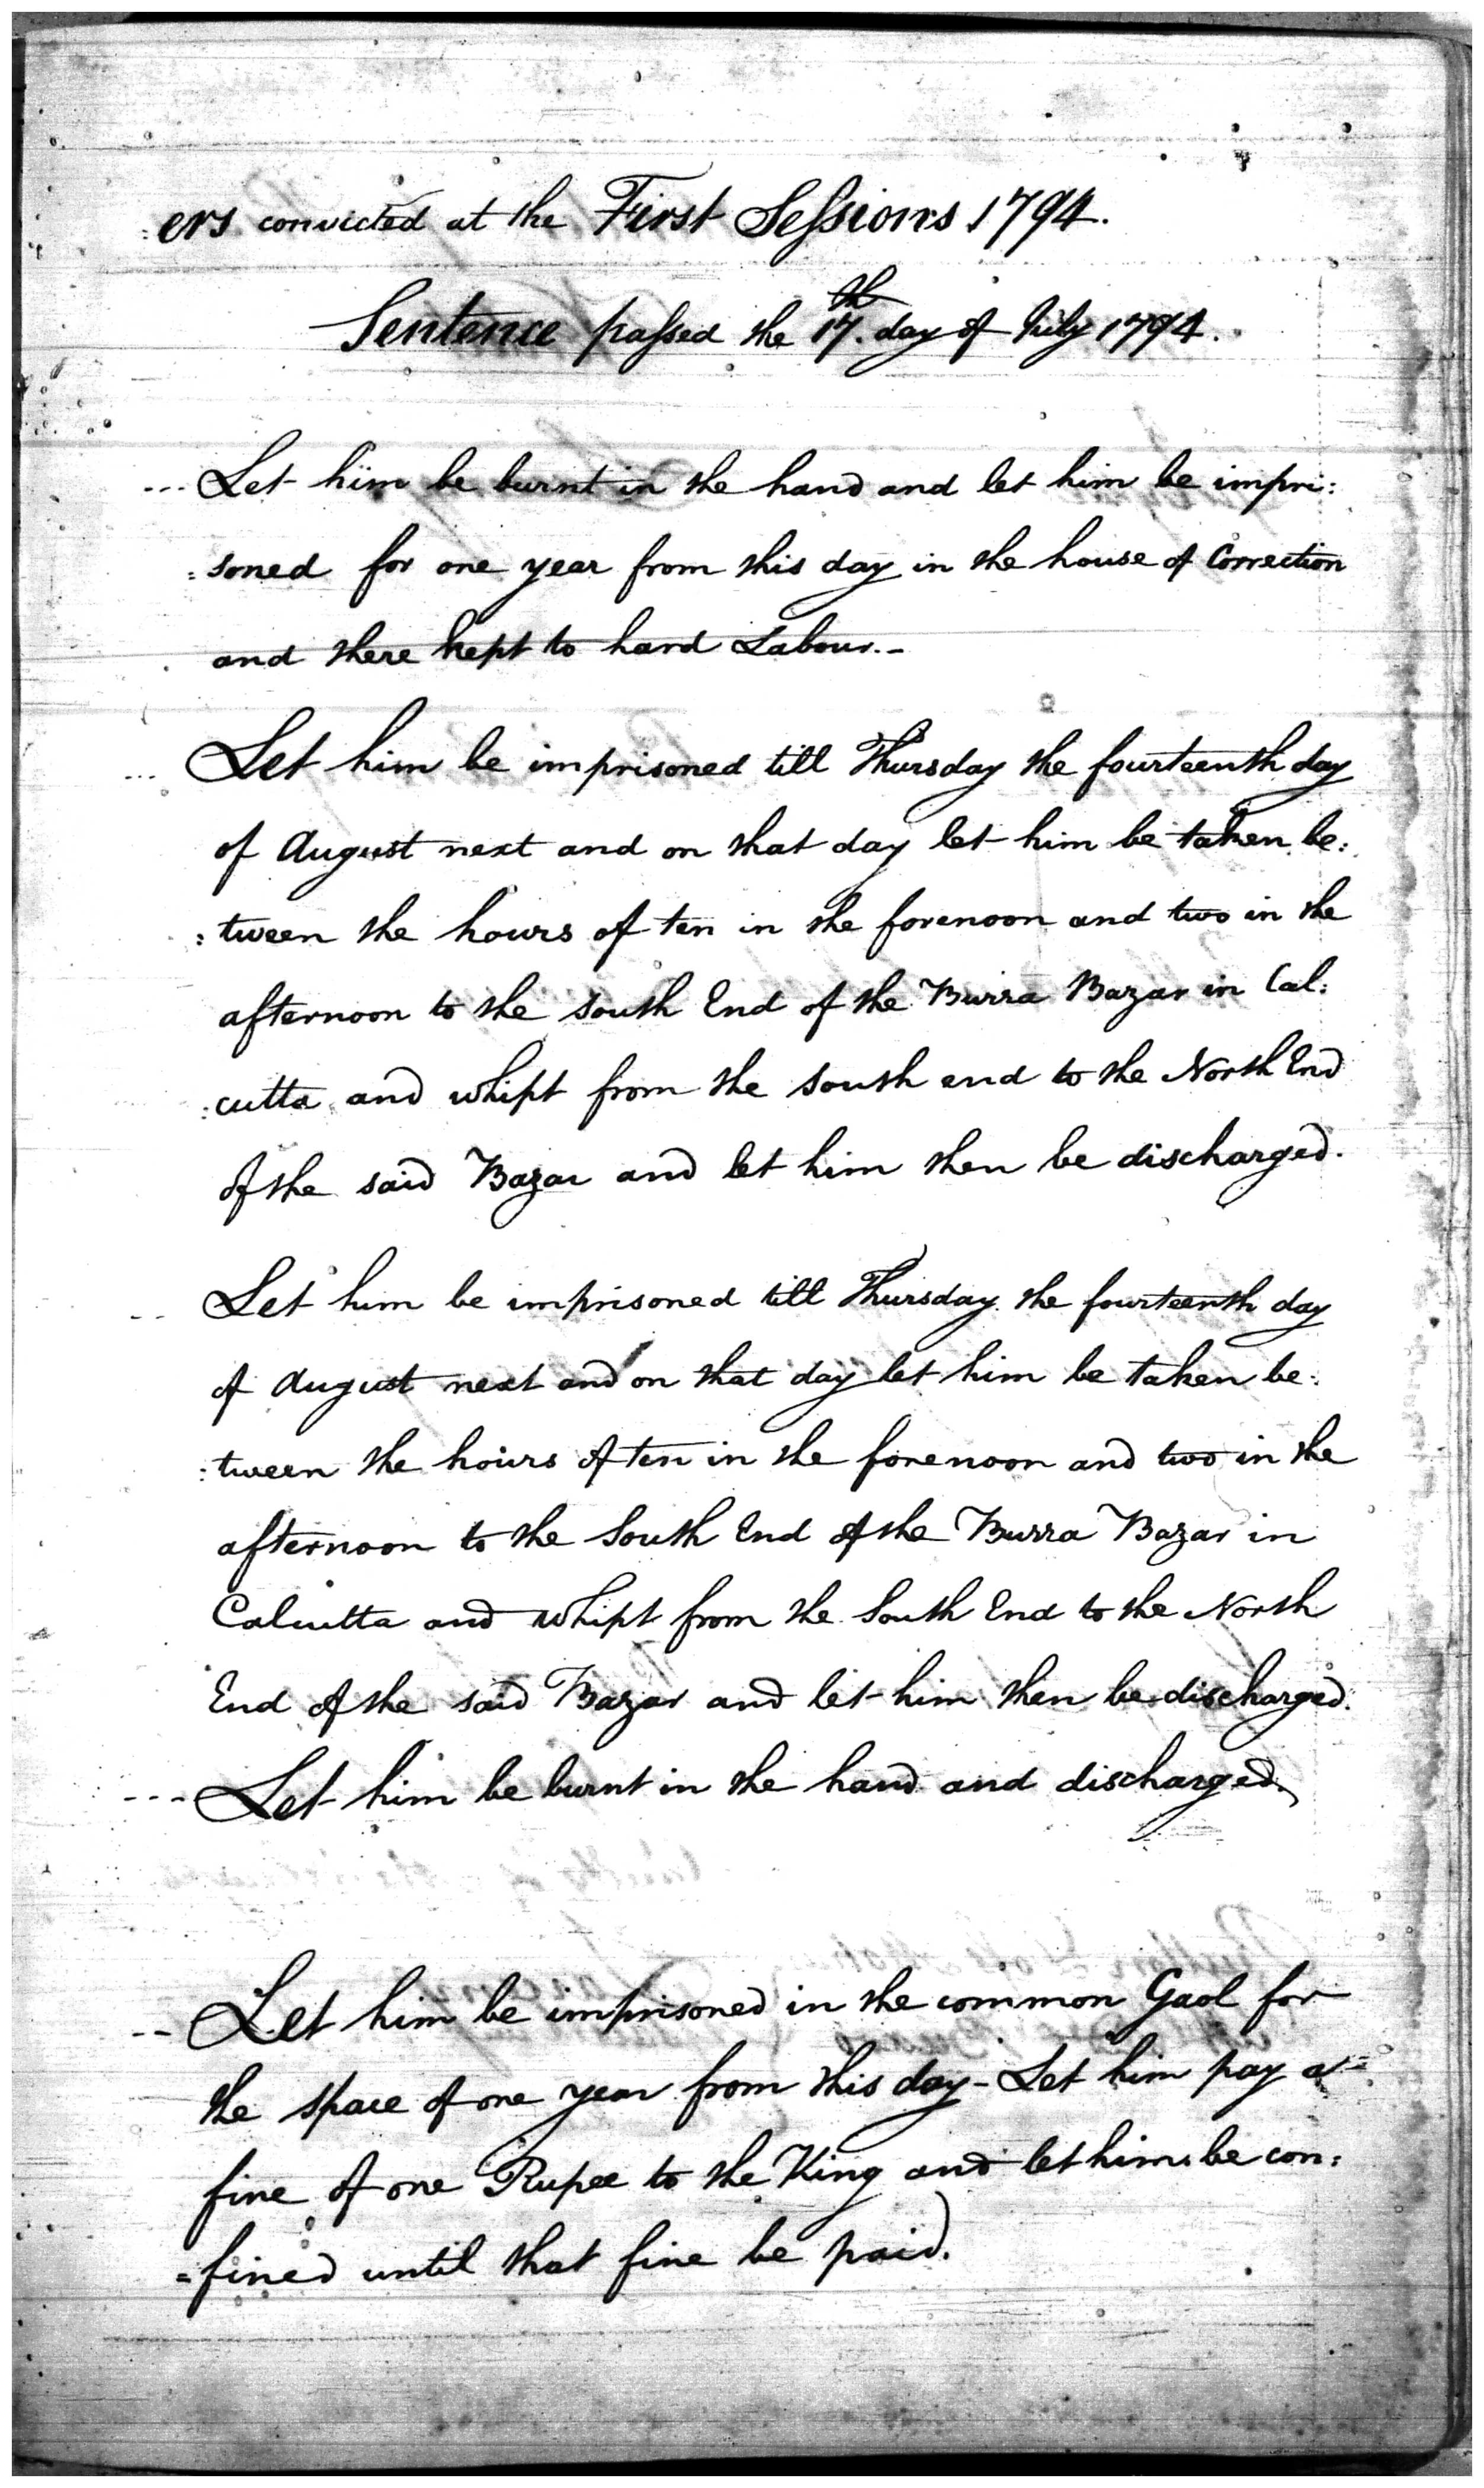 :ers convicted at the First Sessions 1794.
Sentence passed the 17.th day of July 1794.
--- Let him be burnt in the hand and let him be impri:
=soned for one year from this day in the house of Correction
and there kept to hard Labour.-
... Let him be imprisoned till Thursday the fourteenth day
of August next and on that day let him be taken be:
:tween the hours of ten in the forenoon and two in the
afternoon to the south End of the Burra Bazar in Cal:
:cutta and whipt from the south end to the North End
of the said Bazar and let him then be discharged.
-- Let him be imprisoned till Thursday the fourteenth day
of August next and on that day let him be taken be:
:tween the hours of ten in the forenoon and two in the
afternoon to the South End of the Burra Bazar in
Calcutta and whipt from the South End to the North
End of the said Bazar and let him then be discharged.
--- Let him be burnt in the hand and discharged.
-- Let him be imprisoned in the common Gaol for
the space of one year from this day - Let him pay a
fine of one Rupee to the King and let him be con:
=fined until that fine be paid.